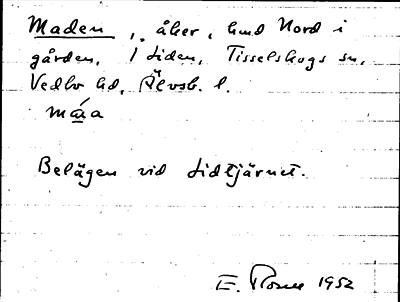 Maden, åker, hmd Nord i
gården, 1 Liden, Tisselskogs sn,
Vedbo hd, Älvsb. l.
Belägen vid Lidtjärnet.
E. 1952